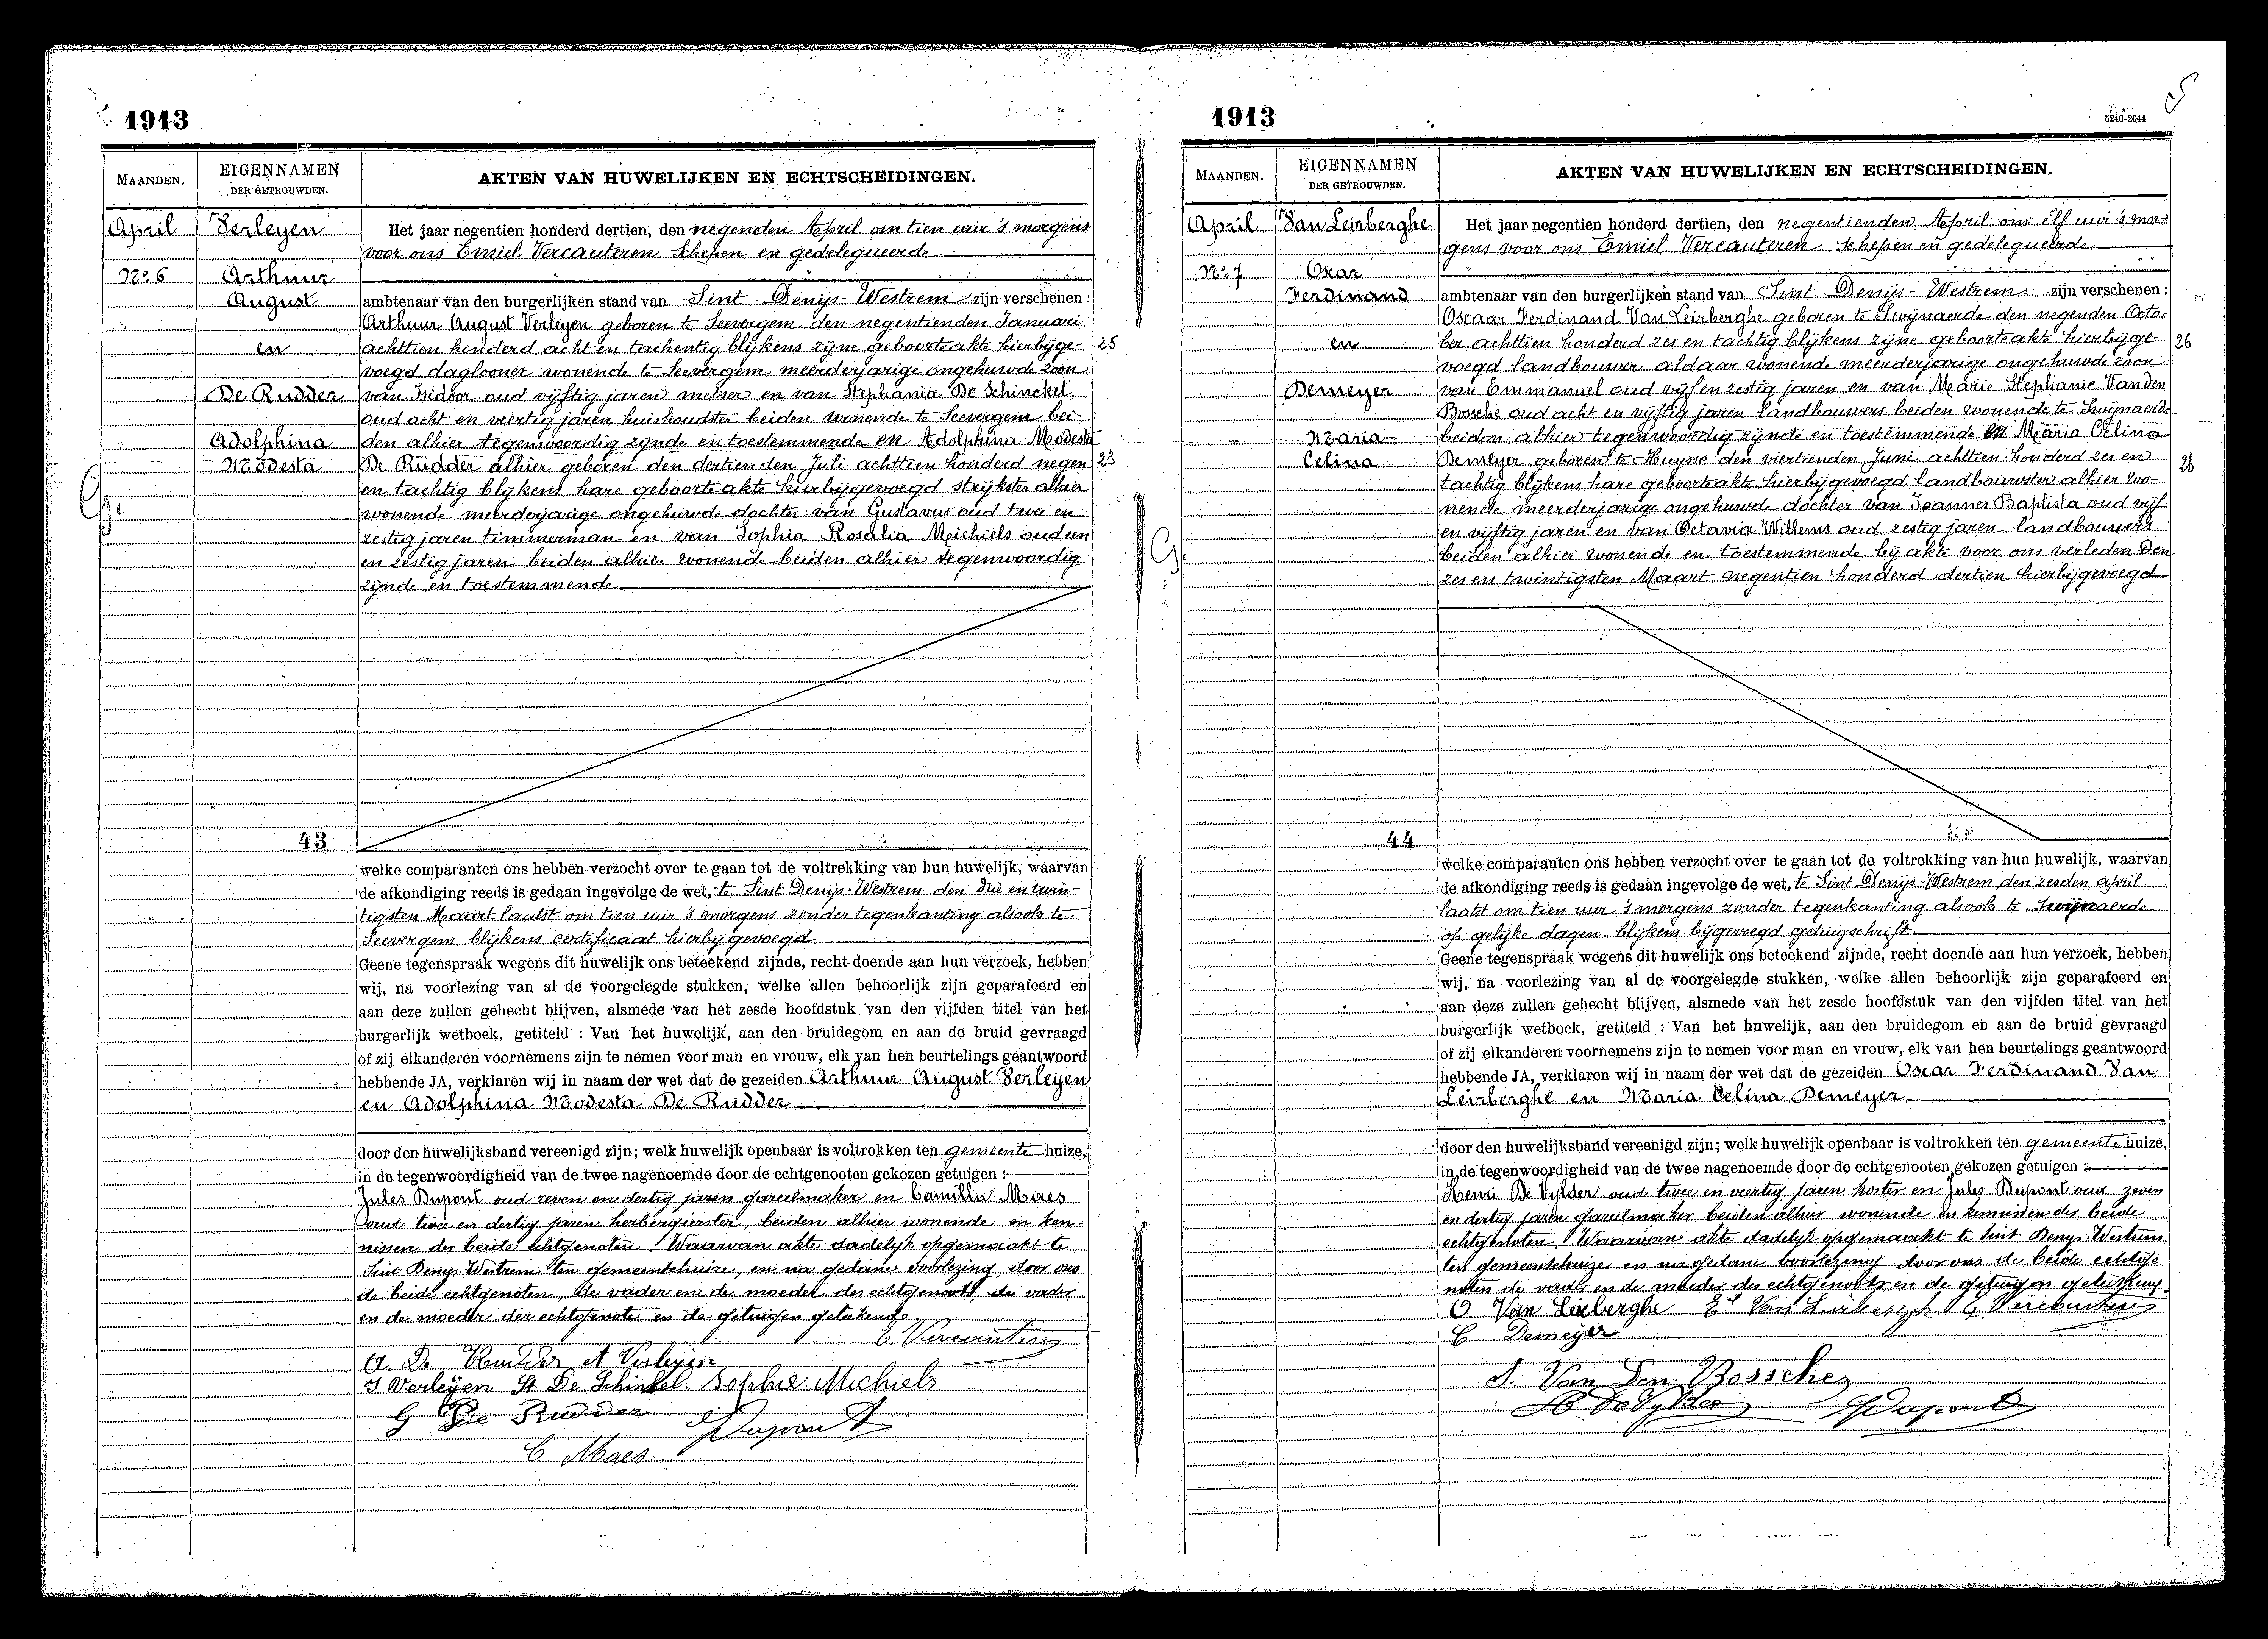 1913
MAANDEN.
EIGENNAMEN
DER GETROUWDEN.
AKTEN VAN HUWELIJKEN EN ECHTSCHEIDINGEN.
April
Verleyen
Het jaar negentien honderd dertien, den negenden April om tien uur 's morgens
voor ons Emiel Vercauteren Schepen en gedelegueerde
No 6
Arthur
August
en
De Rudder
Adolphina
Modesta
ambtenaar van den burgerlijken stand van Sint Denijs-Westrem zijn verschenen :
Arthur August Verleyen geboren te Seevergem den negentienden Januari
achttien honderd acht en tachentig blijkens zijne geboorteakte hierbijge- 25
voegd daglooner wonende te Seevergem meerderjarige ongehuwde zoon
van Isidoor oud vijftig jaren metser en van Stephania De Schinckel
oud acht en veertig jaren huishoudster beiden wonende te Seevergem bei-
den alhier tegenwoordig zijnde en toestemmende en Adolphina Modesta
De Rudder alhier geboren den dertienden Juli achttien honderd negen 23
en tachtig blijkens hare geboorteakte hierbijgevoegd strijkster alhier
wonende meerderjarige ongehuwde dochter van Gustavus oud twee en
zestig jaren timmerman en van Sophia Rosalia Michiels oud een
en zestig jaren beiden alhier wonende beiden alhier tegenwoordig
zijnde en toestemmende
43
welke comparanten ons hebben verzocht over te gaan tot de voltrekking van hun huwelijk, waarvan
de afkondiging reeds is gedaan ingevolge de wet, te Sint Denijs-Westrem den drie en twin-
tigsten Maart laatst om tien uur 's morgens zonder tegenkanting alsook te
Seevergem blijkens certificaat hierbij gevoegd
Geene tegenspraak wegens dit huwelijk ons beteekend zijnde, recht doende aan hun verzoek, hebben
wij, na voorlezing van al de voorgelegde stukken, welke allen behoorlijk zijn geparafeerd en
aan deze zullen gehecht blijven, alsmede van het zesde hoofdstuk van den vijfden titel van het
burgerlijk wetboek, getiteld : Van het huwelijk, aan den bruidegom en aan de bruid gevraagd
of zij elkanderen voornemens zijn te nemen voor man en vrouw, elk van hen beurtelings geantwoord
hebbende JA, verklaren wij in naam der wet dat de gezeiden Arthur August Verleyen
en Adolphina Modesta De Rudder
door den huwelijksband vereenigd zijn; welk huwelijk openbaar is voltrokken ten gemeente huize,
in de tegenwoordigheid van de twee nagenoemde door de echtgenooten gekozen getuigen :
Jules Dupont oud zeven en dertig jaren gareelmaker en Camilla Maes
oud twee en dertig jaren herbergierster, beiden alhier wonende en ken-
nissen der beide echtgenoten. Waarvan akte dadelijk opgemaakt te
Sint Denys Westrem ten gemeentehuize, en na gedane voorlezing door ons
de beide echtgenoten, de vader en de moeder des echtgenoots, de vader
en de moeder der echtgenote en de getuigen getekend.
E Vercauteren
A. De Rudder A Verleijen
I Verleijen St De Schinkel Sophie Michiels
G De Rudder J Dupont
C Maes
1913
5240-2044
MAANDEN.
EIGENNAMEN
DER GETROUWDEN.
AKTEN VAN HUWELIJKEN EN ECHTSCHEIDINGEN.
April
Van Leirberghe
Het jaar negentien honderd dertien, den negentienden April om elf uur 's mor-
gens voor ons Emiel Vercauteren Schepen en gedelegueerde
No 7
Oscar
Ferdinand
en
Demeyer
Maria
Celina
ambtenaar van den burgerlijken stand van Sint Denijs-Westrem zijn verschenen :
Oscaar Ferdinand Van Leirberghe geboren te Swijnaerde den negenden Octo-
ber achttien honderd zes en tachtig blijkens zijne geboorteakte hierbijge- 26
voegd landbouwer aldaar wonende meerderjarige ongehuwde zoon
van Emmanuel oud vijf en zestig jaren en van Marie Stephanie Vanden
Bossche oud acht en vijftig jaren landbouwers beiden wonende te Swijnaerde
beiden alhier tegenwoordig zijnde en toestemmende en Maria Celina
Demeyer geboren te Huysse den viertienden Juni achttien honderd zes en 26
tachtig blijkens hare geboorteakte hierbijgevoegd landbouwster alhier wo-
nende meerderjarige ongehuwde dochter van Joannes Baptista oud vijf
en vijftig jaren en van Octavia Willems oud zestig jaren landbouwers
beiden alhier wonende en toestemmende bij akte voor ons verleden den
zes en twintigsten Maart negentien honderd dertien hierbijgevoegd
44
welke comparanten ons hebben verzocht over te gaan tot de voltrekking van hun huwelijk, waarvan
de afkondiging reeds is gedaan ingevolge de wet, te Sint Denijs-Westrem den zesden april
laatst om tien uur 's morgens zonder tegenkanting alsook te Swijnaerde
op gelijke dagen blijkens bijgevoegd getuigschrift
Geene tegenspraak wegens dit huwelijk ons beteekend zijnde, recht doende aan hun verzoek, hebben
wij, na voorlezing van al de voorgelegde stukken, welke allen behoorlijk zijn geparafeerd en
aan deze zullen gehecht blijven, alsmede van het zesde hoofdstuk van den vijfden titel van het
burgerlijk wetboek, getiteld : Van het huwelijk, aan den bruidegom en aan de bruid gevraagd
of zij elkanderen voornemens zijn te nemen voor man en vrouw, elk van hen beurtelings geantwoord
hebbende JA, verklaren wij in naam der wet dat de gezeiden Oscar Ferdinand Van
Leirberghe en Maria Celina Demeyer
door den huwelijksband vereenigd zijn; welk huwelijk openbaar is voltrokken ten gemeente huize,
in de tegenwoordigheid van de twee nagenoemde door de echtgenooten gekozen getuigen :
Henri De Vylder oud twee en veertig jaren koster en Jules Dupont oud zeven
en dertig jaren gareelmaker beiden alhier wonende en kennissen der beide
echtgenoten. Waarvan akte dadelijk opgemaakt te Sint Denys Westrem
ten gemeentehuize en na gedane voorlezing door ons de beide echtge
noten de vader en de moeder des echtgenoots en de getuigen getekend.
O Van Leirberghe El Van Leirberghe E Vercauteren
C Demeyer
S. Van Den Bossche
H De Vylder J Dupont